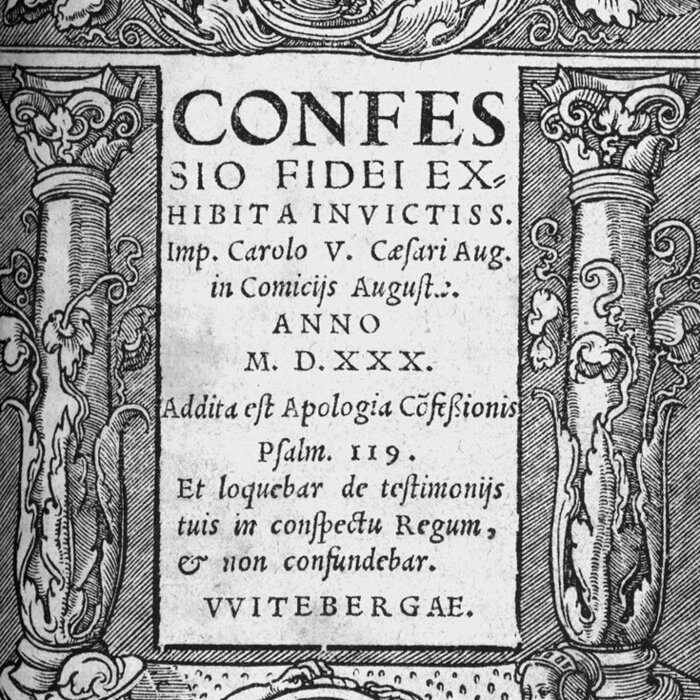 CONFES
SIO FIDEI EX⸗
HIBITA INVICTISS.
Imp. Carolo V. Cæſari Aug.
in Comicijs Auguſt.:.
ANNO
M. D. XXX.
Addita eſt Apologia Cõfeßionis
Pſalm. 119.
Et loquebar de teſtimonijs
tuis in conſpectu Regum,
& non confundebar.
VVITEBERGAE.